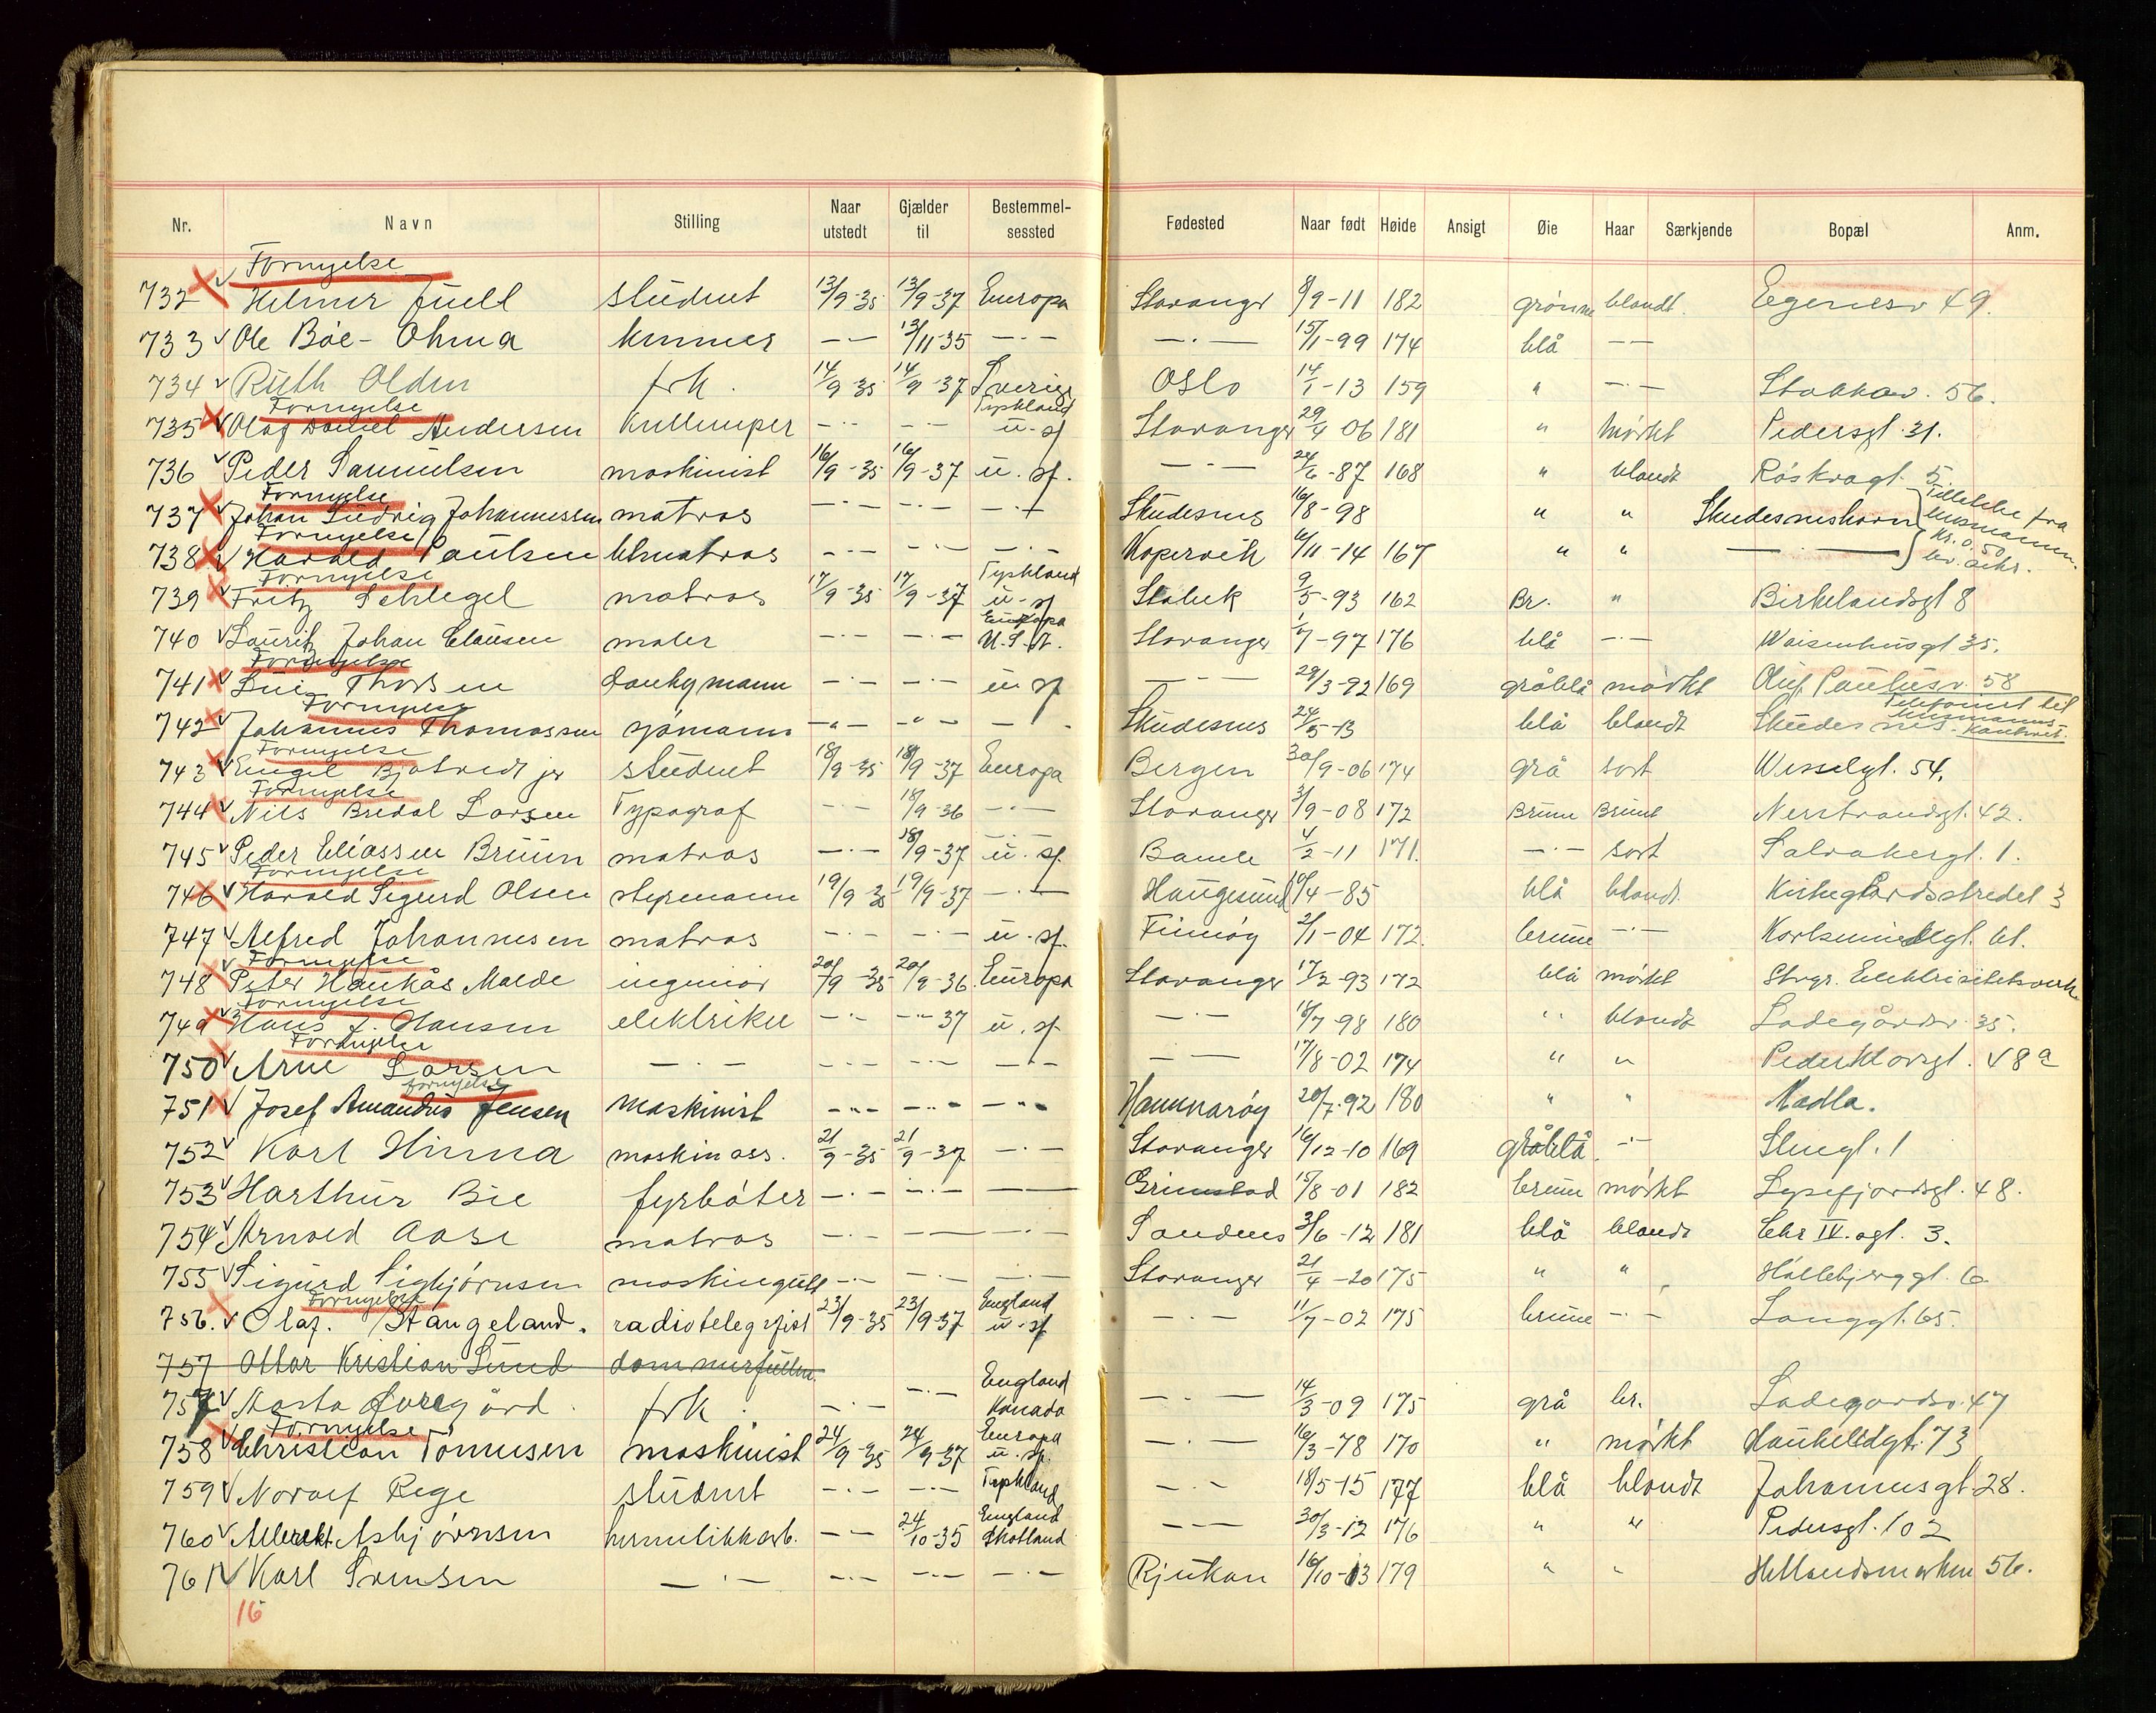 Nr. Navn Stilling Naar utstedt Gjælder til Bestemmelsessted Fødested Naar født Høide Ansigt Øie Haar Særkjende Bopæl Anm.
Fornyelse
732 Hilmar Juell student 13/9-35 13/9-37 Europa Stavanger 8/9-11 182 grønne blondt Egenesv 49.
733 Ole Bøe-Ohma — — 13/11-35 — · — — · — 15/1-99 174 blå — —
734 Ruth Olden frk. 14/9-35 14/9-37 Sverige Oslo 14/1-13 159 " — · — Stokkav. 56.
Fornyelse Tyskland
735 Olaf Daniel Andersen — · — — · — u. sf Stavanger 29/4 06 181 " mørkt Pedersgt. 31.
736 Peder Samuelsen maskinist 16/9-35 16/9-37 u. sf. — · — 24/6-87 168 " blondt Røskragt. 5
Fornyelse
737 Johan Ludvig Johannessen matros — · — — · — — · — Skudesnes 16/8-98 " " Skudesneshavn
Fornyelse
738 Harald Paulsen — · — — · — — · — Kopervik 6/11-14 167 " " — · — kr. 0.50
Fornyelse Tyskland
739 Fritz Schlegel matros 17/9-35 17/9-37 u. sf 9/5-93 162 Br. " Birkelandsgt 8
Europa
740 Lauritz Johan Clausen maler — · — — · — U.S.A. Stavanger 1/7-97 176 blå — · — Waisenhusgt 35.
Fornyelse
741 Thorsen donkymann — · — — · — u. sf — · — 29/3-92 169 gråblå mørkt Oluf Paulusv. 58
Fornyelse
742 Johannes Thomassen sjømann — " — — " — — Skudesnes 24/5-13 blå blondt Skudesnes
Fornyelse
743 Bjotvedt jr student 18/9-35 18/9-37 Europa Bergen 30/9-06 174 grå sort Wesselgt. 54.
Fornyelse
744 Nils Bredal Larsen Typograf — · — 18/9-36 — · — Stavanger 3/9-08 172 Brune Brunt Nerstrandsgt. 42.
745 Peder Eliassen Bruun matros — · — 18/9-37 u. sf. Bamle 4/2-11 171. — · — sort Solvabergt. 1.
Fornyelse
746 Harald Sigurd Olsen styrmann 19/9 35 19/9-37 — · — Haugesund 10/4-85 blå blondt Kirkegårdsstredet 3
747 Alfred Johannesen matros — · — — · — u. sf. Finnøy 2/1-04 172. brune — · — Karlsminnegt. 61.
Fornyelse
748 Peter Haukås Malde ingeniør 20/9-35 20/9-36 Europa Stavanger 17/2-93 172 blå mørkt Stvgr. Elektrisitetsverk
Fornyelse
749 Hans J. Hansen elektriker — · — — · — 37 u. sf. — · — 18/7 98 180 " blondt Ladegårdsv. 35.
Fornyelse
750 Arne Larsen — · — — · — — · — — · — — · — 17/8-02 174 " " Peder Klowsgt. 48a
fornyelse
751 Josef Amandus Jensen maskinist — " — — " — — " — Hammarøy 20/7.92 180 " " Madla.
752 Karl Hinna maskinass. 21/9-35 21/9-37 — · — Stavanger 16/12-10 169 gråblå — · — Stengt. 1
753 Harthur Bie fyrbøter — · — — · — — Grimstad 15/8-01 182 brune mørkt Lysefjordsgt. 48.
754 Arnold Aase matros — · — — — · — Sandnes 3/6-12 181 blå blondt Chr IV.ogt. 3.
755 Sigurd Sigbjørnsen maskingutt — · — — · — — · — Stavanger 21/4-20 175 " " 6
Fornyelse England
756. Olaf. Stangeland. radiotelegrafist 23/9-35 23/9-37 u. sf — · — 11/7-02 175 brune — · — Langgt. 65.
757 Ottar Kristian Lund dommerfullm.
England
757 Marta frk. — · — — · — Kanada — · — 14/3-09 175 grå br. Ladegårdsv. 47
Fornyelse Europa
758 Christian Tønnesen maskinist 24/9-35 24/9-37 u. sf. — · — 16/3-78 170 " mørkt Haukeligt. 73
759 Norolf Rege student — · — — · — Tyskland — · — 18/5-15 177 blå blondt Johannesgt. 28.
England
760 Albrekt Asbjørnsen hermetikkarb. — — 24/10-35 Skotland — · — 30/3-12 176 " " Pedersgt. 102
761 Karl Svensen — · — — · — — · — — · — Rjukan 16/10-13 179 " " Hetlandsmarken 56.
16